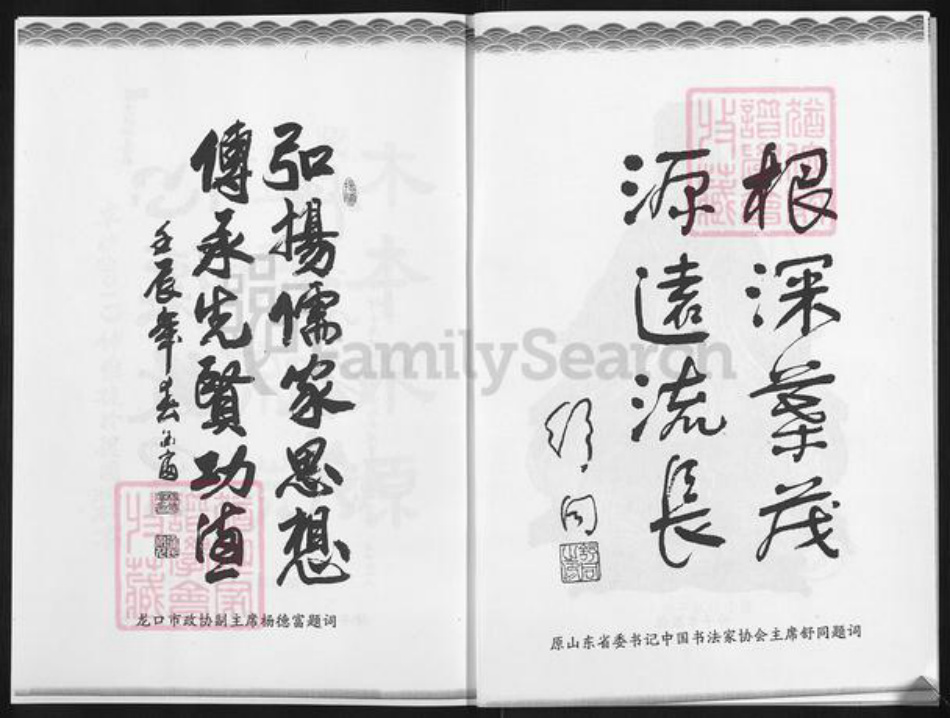 根深葉茂
源遠流長
舒同
舒同
原山东省委书记中国书法家协会主席舒同题词
弘揚儒家思想
傳承先賢功德
壬辰年春
龙口市政协副主席杨德富题词
譜學會
特藏
FamilySearch